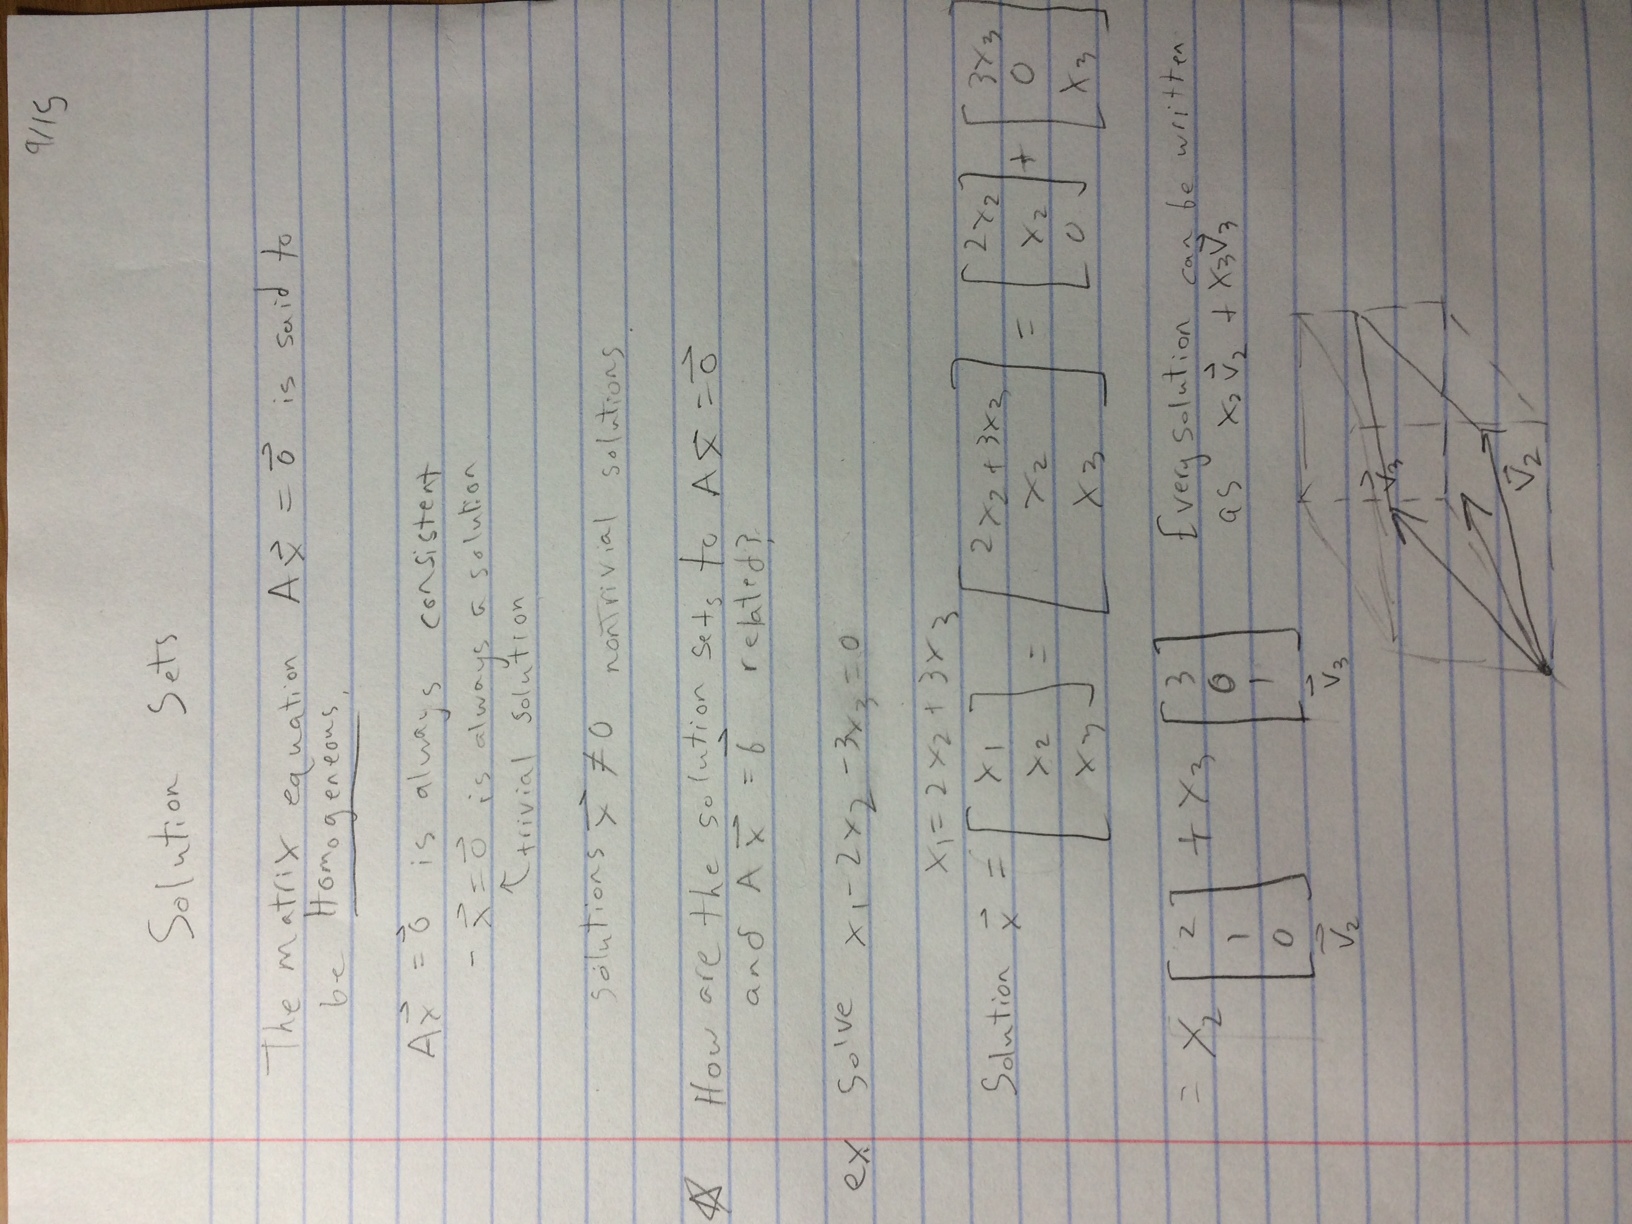 9/15
Solution Sets
The matrix equation Ax⃗ = 0⃗ is said to
be Homogeneous.
Ax⃗ = 0⃗ is always consistent
- x⃗ = 0⃗ is always a solution
↑ trivial solution
solutions x⃗ ≠ 0 nontrivial solutions
☆ How are the solution sets to Ax⃗ = 0⃗
and Ax⃗ = b⃗ related?
ex Solve x₁ - 2x₂ - 3x₃ = 0
x₁ = 2x₂ + 3x₃
Solution x⃗ = [x₁ x₂ x₃] = [2x₂ + 3x₃ x₂ x₃] = [2x₂ x₂ 0] + [3x₃ 0 x₃]
= x₂ [2 1 0] + x₃ [3 0 1] Every solution can be written
v⃗₂ v⃗₃ as x₂v⃗₂ + x₃v⃗₃
v⃗₃
v⃗₂